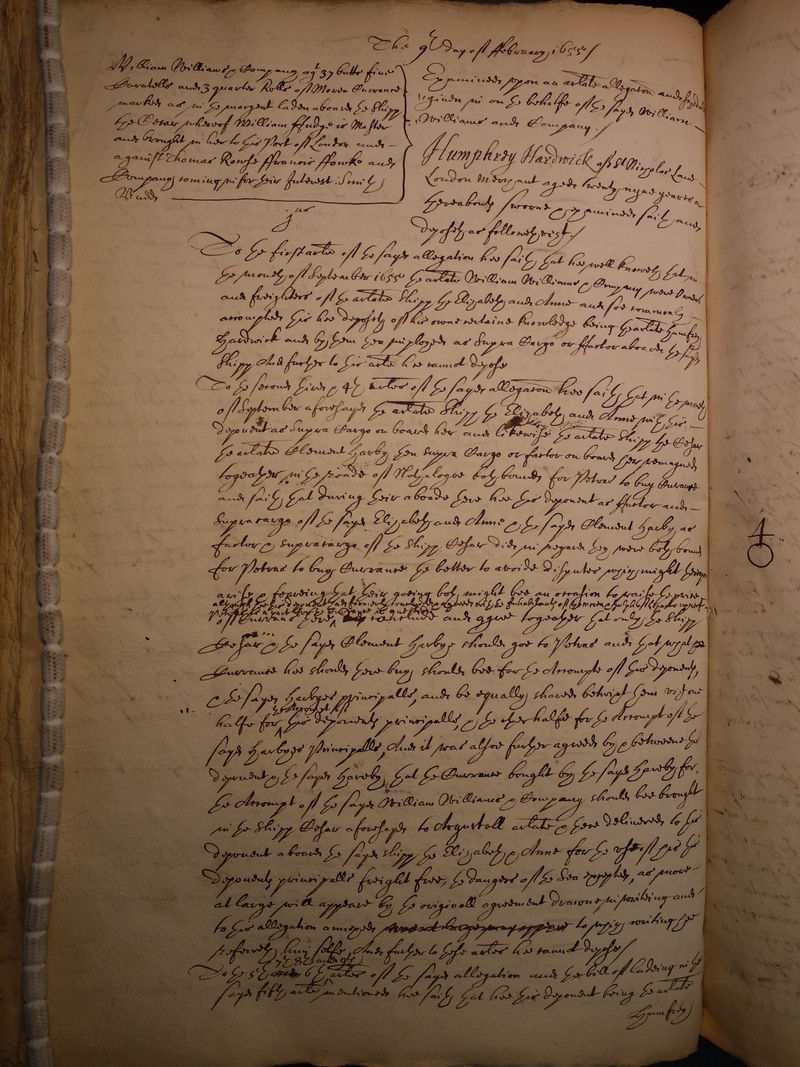 The 9th day of ffebruary 1655
William Williams & Company agt 37 butts fine
Caratells and 3 quarter Rolls of Morea Currance
marked as in the margent laden aboard the Shipp
the Cesar whereof William ffudge is Master
and brought in her to this Port of London and
against Thomas Rowse ffrancis ffowke and
Company coming in for their Interest. Smith
Budd
Examined upon an arlate allegation and
given in on the behalfe of the sayd William
Williams and Company.
Humphrey Hardwick of St Nicholas Lane
London Merchant aged twenty nyne yeares or
thereabouts sworne & examined saith and
deposeth as followeth vizt.
jus
To the first arlate of the sayd allegation hee saith that hee well knoweth that in
the moneth of September 1655 the arlate William Williams & Company were Owners
and freighters of the arlate Shipp the Elizabeth and Anne and soe commonly
accompted this hee deposeth of his owne certaine knowledge being the arlate Humfrey
Hardwick and by them then imployed as Supra Cargo or ffactor aboard the sayd
Shipp And further to this arlate hee cannot depose
To the second third & 4th arles of the sayd allegation hee saith that in the moneth
of September aforesayd the arlate Shipp the Elizabeth and Anne with this
deponent as Supra Cargo on board her and likewise the arlate Shipp the Cesar
the arlate Clement Harby then supra Cargo or factor on board her remayned
togeather in the roade of bothe bound for Petras to buy Currance
and saith that during their aboade there hee this deponent as ffactor and
Supracargo of the sayd Elizabeth and Anne & the sayd Clement Harby as
factor & supracargo of the Shipp Cesar did in regard they were both bound
for Petras to buy Currance the better to avoide disputes which might
arise & fearing that their goeing both might bee an occasion to raise the price
of Currans there, conclude and agree togeather that only the Shipp
Cesar & the sayd Clement Harbye should goe to Petras and that what
Currance hee should there buy should bee for the Accompte of this deponents
& the sayd Harbyes principalls, and be equally shared betwixt them vizt one
halfe for this deponents principalls, & the other halfe for the Accompt of the
sayd Harbyes Principalls, And it was alsoe further agreed by & betweene this
deponent & the sayd Hareby, that the Currance bought by the sayd Hareby for
the Accompt of the sayd William Williams & Company should bee brought
in the Shipp Cesar aforesayd to Argustoll arlate & there delivered to this
deponent aboard the sayd shipp the Elizabeth & Anne for the use of this
deponents principalls freight free, the dangers of the Sea excepted, as more
at large will appeare by the originall agreement drawne in writeing and
to this allegation annexed to which writing hee
referreth him selfe, And further to these arles hee cannot depose
To the 5th 6th 7th 8th and 9th arles of the sayd allegation and the bill of ladeing in the
sayd fifth arlate mentioned hee saith that hee this deponent being the arlate
Humfrey